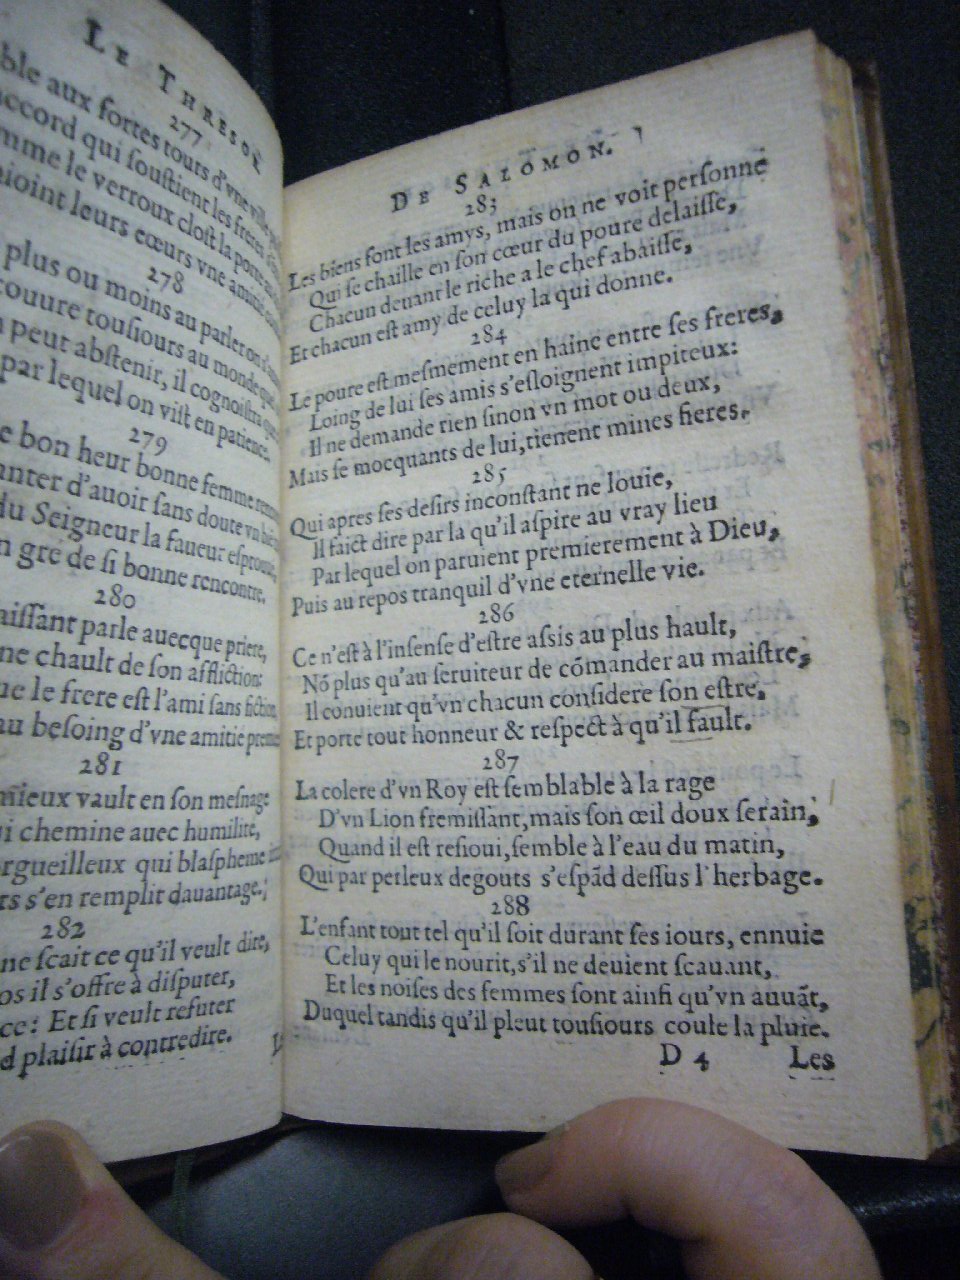 LE THRESOR
277
ble aux fortes tours d'vne ville
accord qui ſouſtient les freres
mme le verroux cloſt la porte
nioint leurs cœurs vne amitié
278
plus ou moins au parler on
couure touſiours au monde que
peut abſtenir, il cognoiſtra
par lequel on viſt en patience.
279
e bon heur bonne femme
anter d'auoir ſans doute vn
du Seigneur la faueur
n gre de ſi bonne rencontre.
280
aiſſant parle auecque priere,
ne chault de ſon affliction:
ue le frere eſt l'ami ſans fiction,
au beſoing d'vne amitié
281
mieux vault en ſon meſnage
ui chemine auec humilité,
orgueilleux qui blaſpheme
rs s'en remplit dauantage.
282
ne ſcait ce qu'il veult dire,
os il s'offre à diſputer,
ce: Et ſi veult refuter
d plaiſir à contredire.
DE SALOMON.
283
Les biens ſont les amys, mais on ne voit perſonne
Qui ſe chaille en ſon cœur du poure delaiſſe,
Chacun deuant le riche a le chef abaiſſe,
Et chacun eſt amy de celuy la qui donne.
284
Le poure eſt meſmement en haine entre ſes freres,
Loing de lui ſes amis s'eſloignent impiteux:
Il ne demande rien ſinon vn mot ou deux,
Mais ſe mocquants de lui, tienent mines fieres.
285
Qui apres ſes deſirs inconſtant ne louie,
Il faict dire par là qu'il aſpire au vray lieu
Par lequel on paruient premierement à Dieu,
Puis au repos tranquil d'vne eternelle vie.
286
Ce n'eſt à l'inſenſe d'eſtre aſsis au plus hault,
Nõ plus qu'au ſeruiteur de cõmander au maiſtre,
Il conuient qu'vn chacun conſidere ſon eſtre,
Et porte tout honneur & reſpect à qu'il fault.
287
La colere d'vn Roy eſt ſemblable à la rage
D'vn Lion fremiſſant, mais ſon œil doux ſerain,
Quand il eſt reſioui, ſemble à l'eau du matin,
Qui par perleux degouts s'eſpãd deſſus l'herbage.
288
L'enfant tout tel qu'il ſoit durant ſes iours, ennuie
Celuy qui le nourit, s'il ne deuient ſcauant,
Et les noiſes des femmes ſont ainſi qu'vn auuãt,
Duquel tandis qu'il pleut touſiours coule la pluie.
D 4 Les